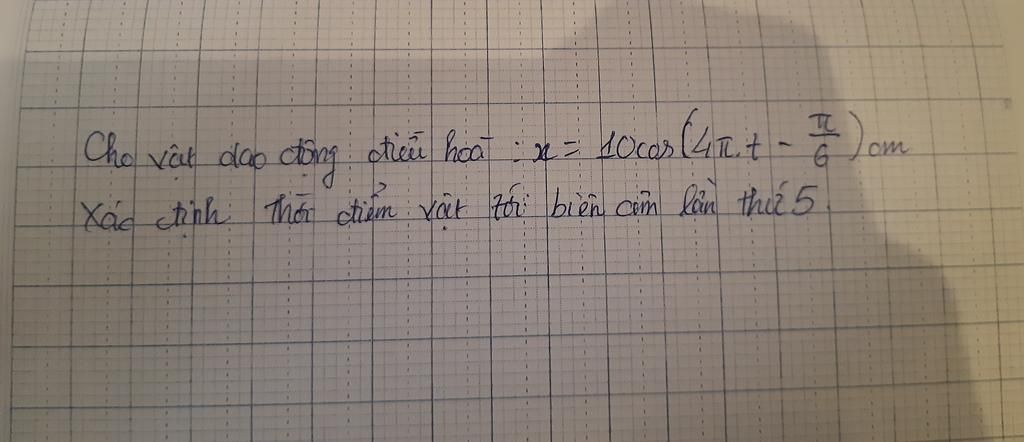 Cho vật dao động điều hoà : x = 10cos(4π.t - π/6) cm
Xác định thời điểm vật tới biên âm lần thứ 5.